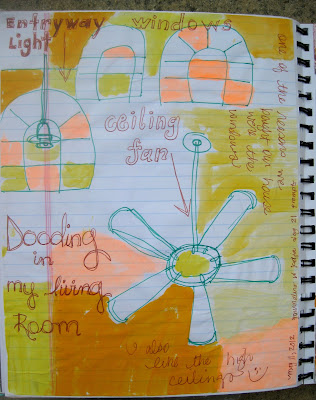 Entryway
Light
windows
one of the reasons we
bought our house
were the
windows
ceiling
fan
Dooding
in
my living
Room
I also
like the high
ceilings